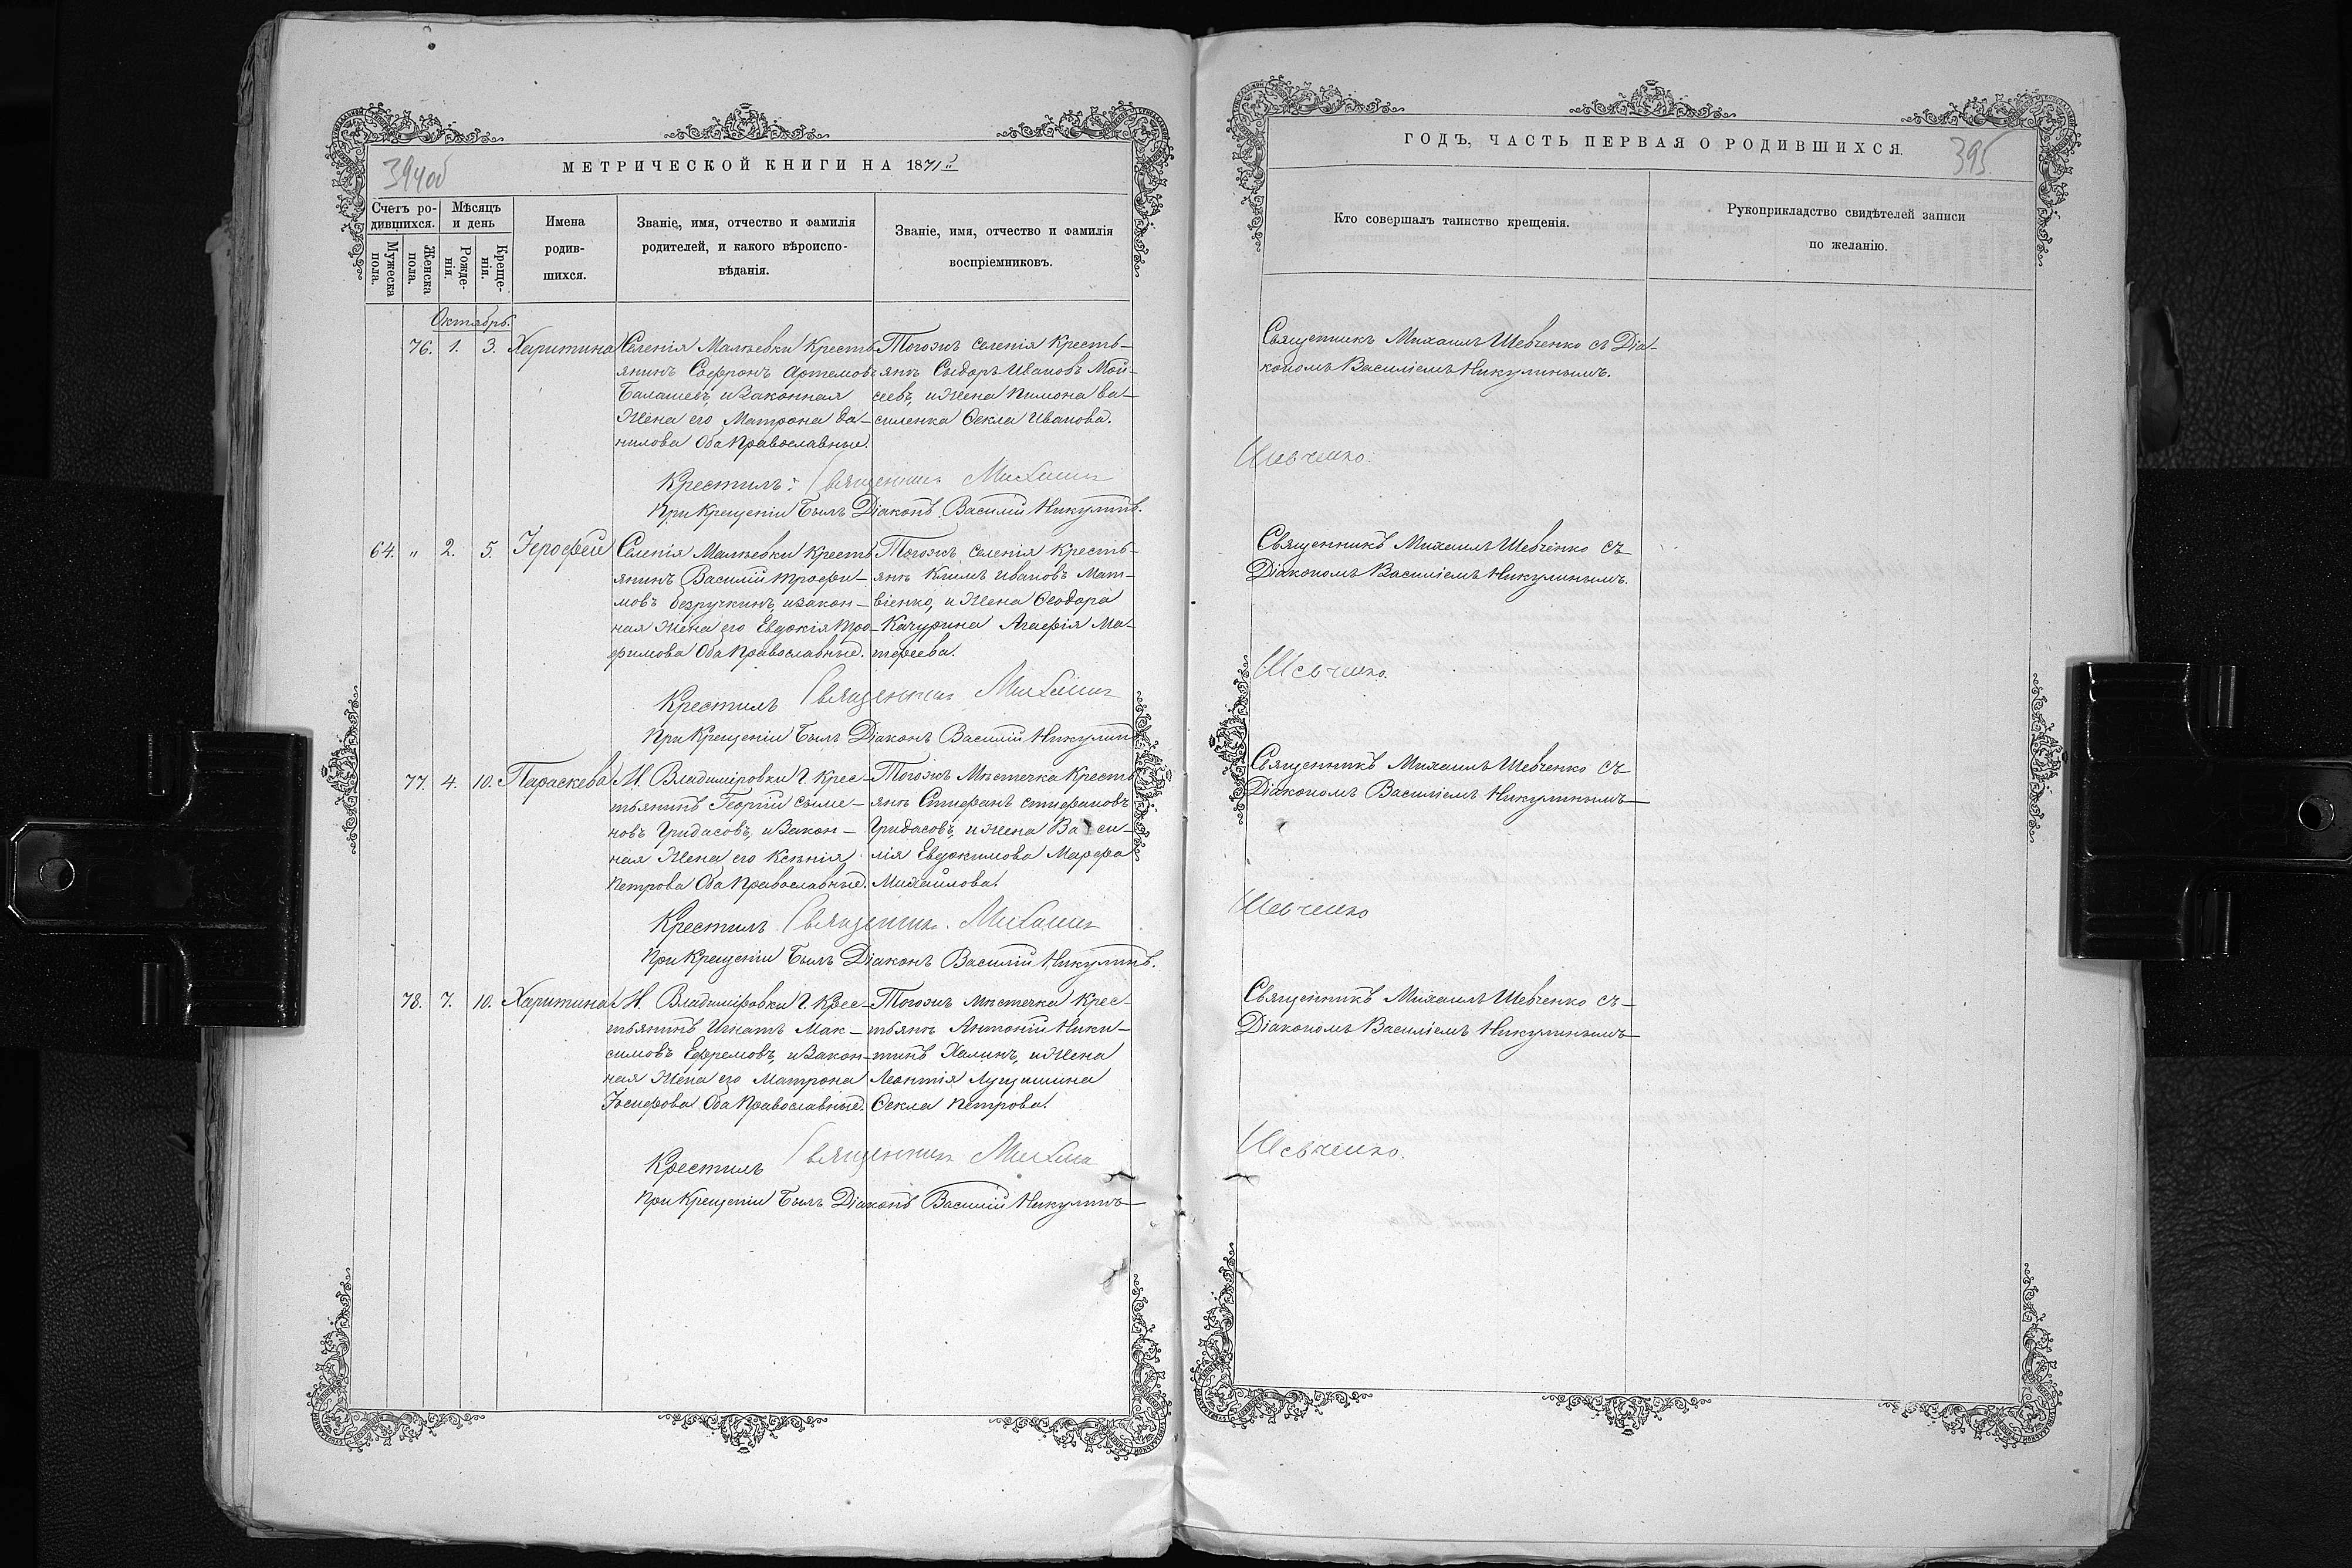 394об
МЕТРИЧЕСКОЙ КНИГИ НА 1871й
Счетъ ро-
дившихся.
Мѣсяцъ
и день
Мужеска
пола.
Женска
пола.
Рожде-
нія.
Креще-
нія.
Имена
родив-
шихся.
Званіе, имя, отчество и фамилія
родителей, и какого вѣроиспо-
вѣданія.
Званіе, имя, отчество и фамилія
воспріемниковъ.
Октябрь.
76. 1. 3. Харитина
Селенія Малѣевки Кресть-
янинъ Софронъ Артемовъ
Балашевъ, и Законная
Жена его Матрона Да-
нилова Оба Православные.
Тогожъ селенія Кресть-
янъ Сыдоръ Ивановъ Мой-
сеевъ, и Жена Пимона Ва-
силенка Ѳекла Иванова.
Крестилъ: Священникъ Михаилъ
При Крещеніи Былъ Діаконъ Василій Никулинъ.
64. „ 2. 5. Іерофей
Селенія Малѣевки Кресть-
янинъ Василій Трофи-
мовъ Безручкинъ, и закон-
ная Жена его Евдокія Тро-
фимова Оба Православные.
Тогожъ селенія Кресть-
янъ Климъ Ивановъ Мат-
віенко, и Жена Ѳеодора
Качурина Агафія Ма-
тфеева.
Крестилъ Священникъ Михаилъ
При Крещеніи Былъ Діаконъ Василій Никулинъ
77. 4. 10. Параскева
М. Владиміровки Г. Крес-
тьянинъ Георгій Симе-
новъ Гридасовъ, и Закон-
ная Жена его Ксенія
Петрова Оба Православные.
Тогожъ Мѣстечка Кресть-
янъ Стефанъ Стефановъ
Гридасовъ, и жена Васи-
лія Евдокимова Марфа
Михайлова.
Крестилъ Священникъ Михаилъ
При Крещеніи Былъ Діаконъ Василій Никулинъ.
78. 7. 10. Харитина
М. Владиміровки Г. Крес-
тьянинъ Игнатъ Мак-
симовъ Ефремовъ, и Закон-
ная Жена его Матрона
Іосифова Оба Православные.
Тогожъ мѣстечка Крес-
тьянъ Антоній Ники-
тинъ Халинъ, и Жена
Леонтія
Ѳекла Петрова.
Крестилъ Священникъ Михаилъ
При Крещеніи Былъ Діаконъ Василій Никулинъ
ГОДЪ, ЧАСТЬ ПЕРВАЯ О РОДИВШИХСЯ.
395.
Кто совершалъ таинство крещенія.
Рукоприкладство свидѣтелей записи
по желанію.
Священникъ Михаилъ Шевченко съ Діа-
кономъ Василіемъ Никулинымъ.
Шевченко.
Священникъ Михаилъ Шевченко съ
Діакономъ Василіемъ Никулинымъ.
Шевченко.
Священникъ Михаилъ Шевченко съ
Діакономъ Василіемъ Никулинымъ
Шевченко
Священникъ Михаилъ Шевченко съ
Діакономъ Василіемъ Никулинымъ
Шевченко.